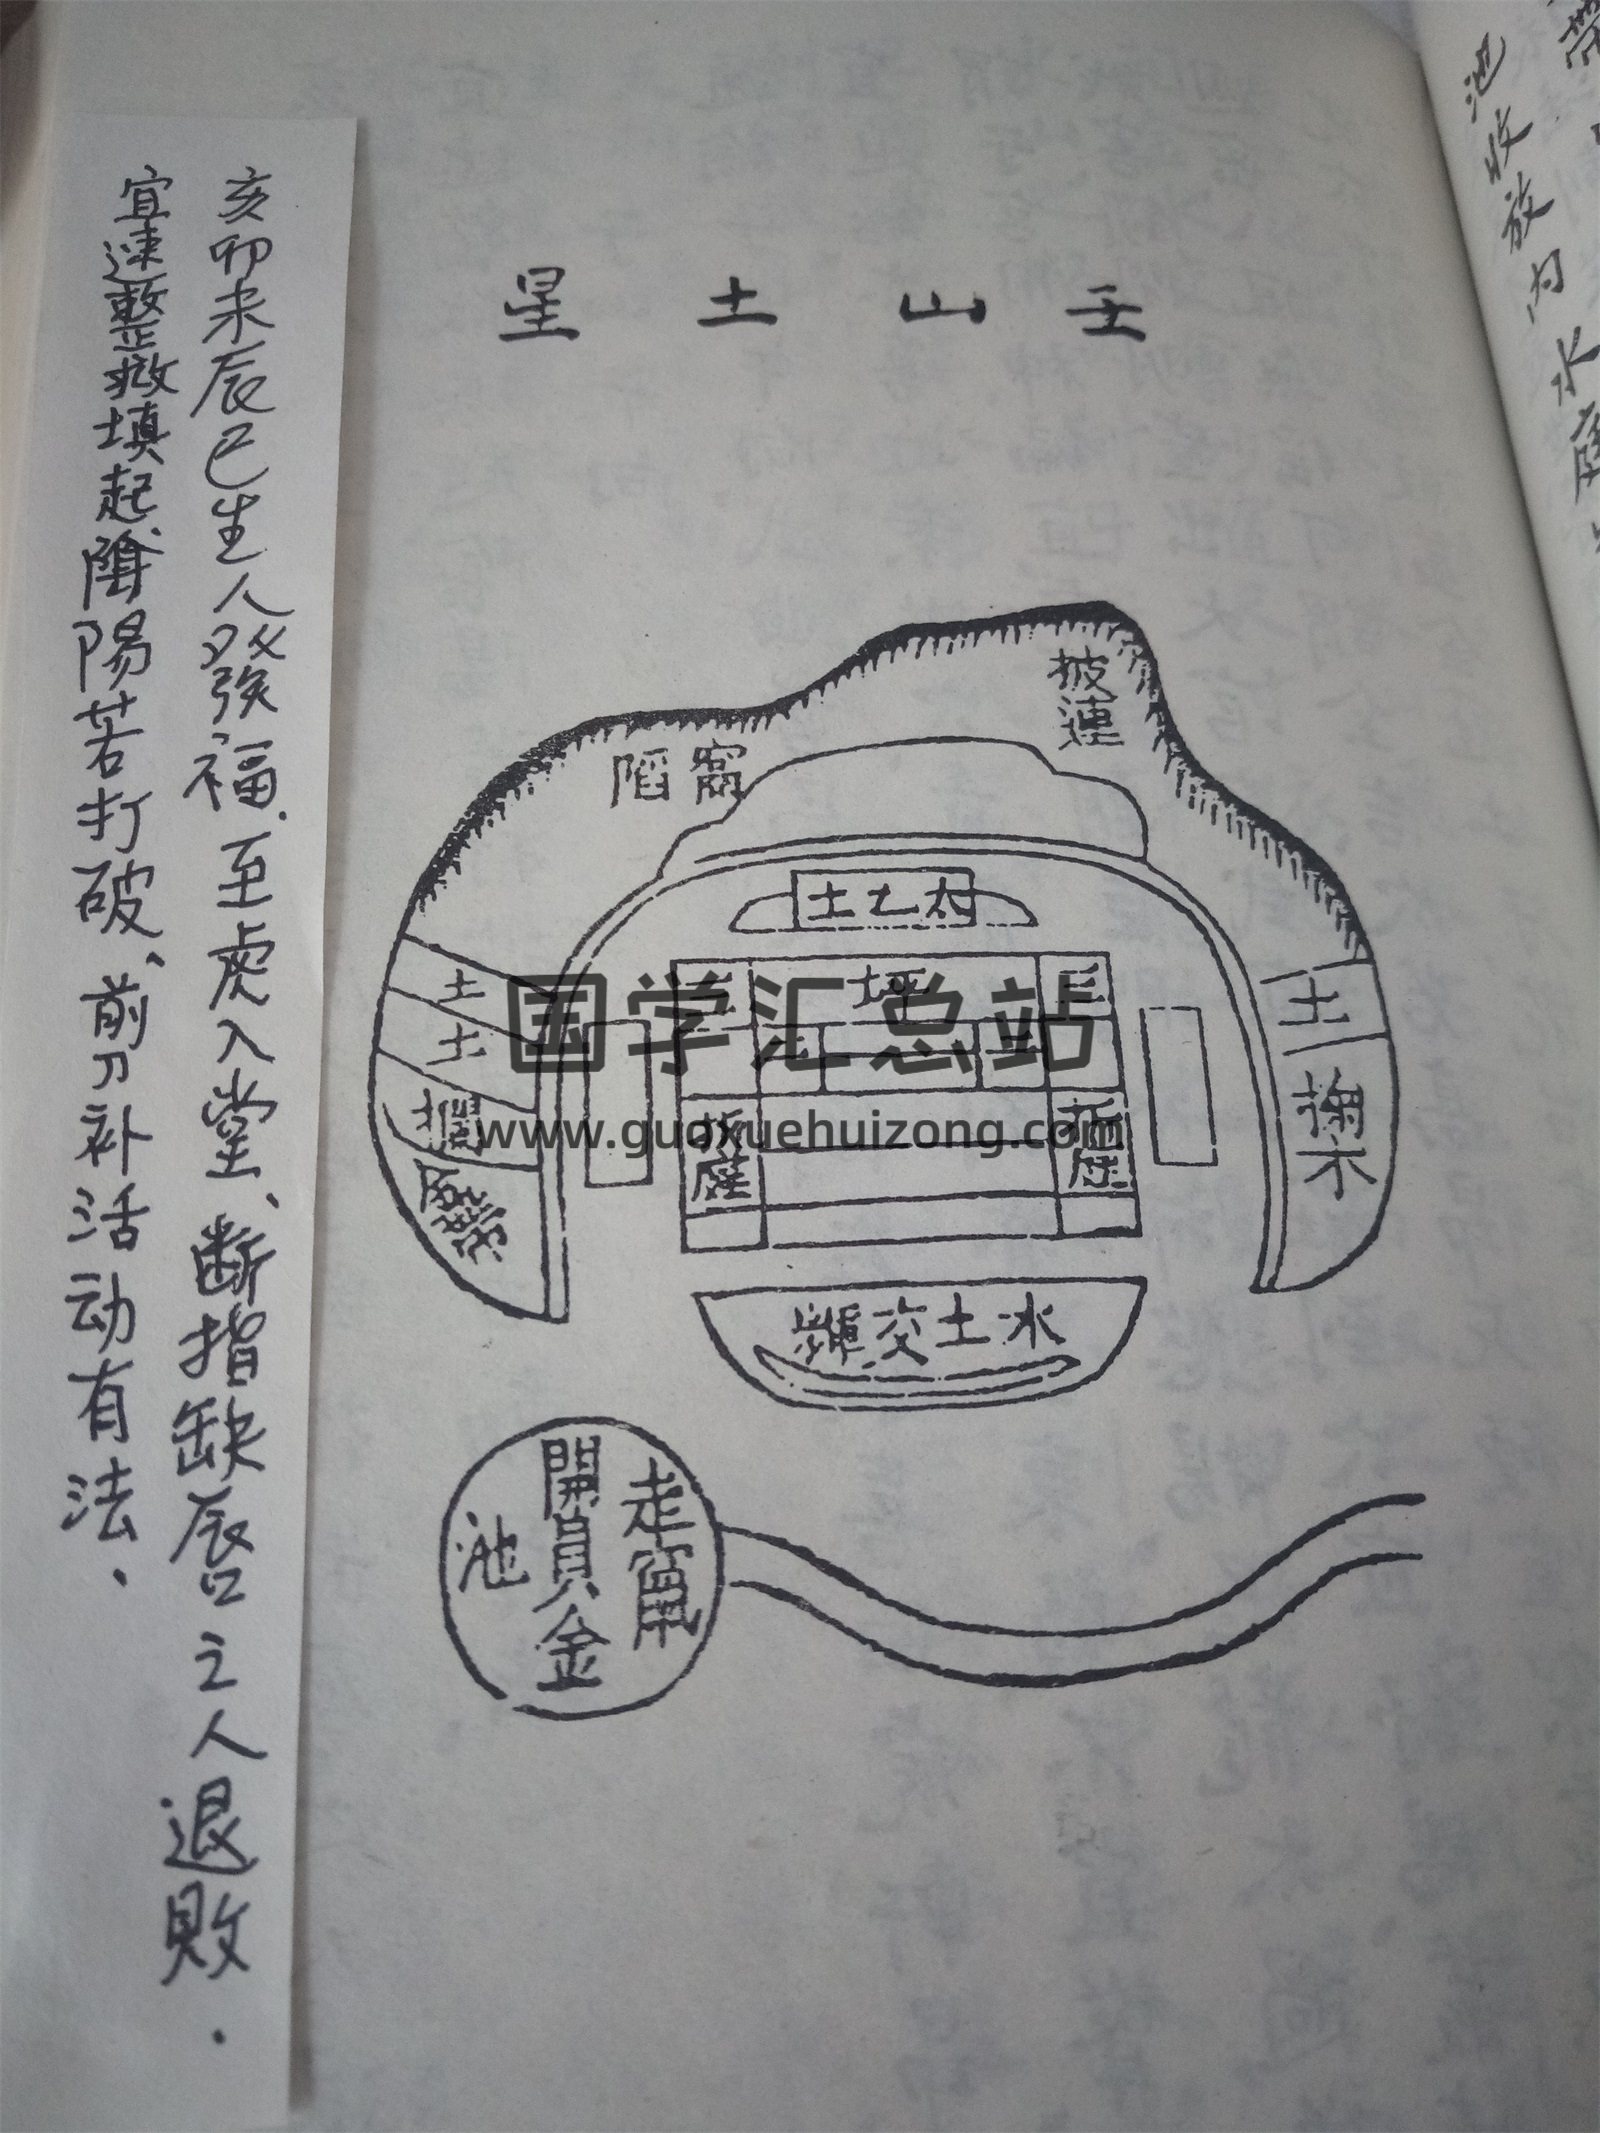 壬山土星
披連
窩陷
太乙土
土
土
土
坪
土
土
土
折庭
折庭
水土交
走竄
開員金
池
亥卯未辰巳生人發福.至虎入堂、断指缺唇之人退败.
宜速整救填起、陰陽若打破、前刀补活动有法.
池收放内水
国学汇总站
www.guoxuehuizong.com